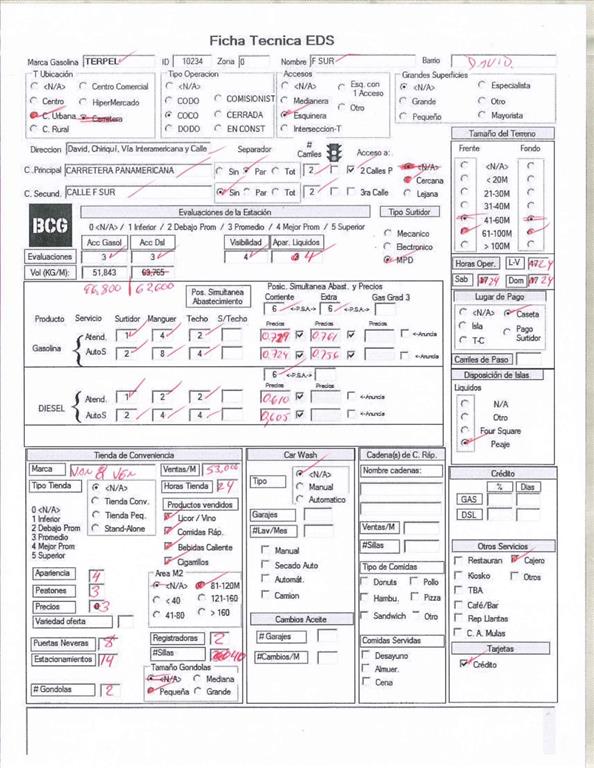 Ficha Tecnica EDS
Marca Gasolina TERPEL ID 10234 Zona 0 Nombre F SUR Barrio DAVID
T Ubicación Tipo Operacion Accesos Grandes Superficies
<N/A> Centro Comercial <N/A> <N/A> Esq. con 1 Acceso <N/A> Especialista
Centro HiperMercado CODO COMISIONIST Medianera Otro Grande Otro
C. Urbana Carretera COCO CERRADA Esquinera Pequeño Mayorista
C. Rural DODO EN CONST Interseccion-T
Tamaño del Terreno
Frente Fondo
<N/A>
< 20M
21-30M
31-40M
41-60M
61-100M
> 100M
Direccion David, Chiriquí, Vía Interamericana y Calle Separador # Carriles Acceso a:
C. Principal CARRETERA PANAMERICANA Sin Par Tot 2 2 Calles P <N/A>
Cercana
C. Secund. CALLE F SUR Sin Par Tot 2 3ra Calle Lejana
BCG
Evaluaciones de la Estación
0 <N/A> / 1 Inferior / 2 Debajo Prom / 3 Promedio / 4 Mejor Prom / 5 Superior
Acc Gasol Acc Dsl Visibilidad Apar. Liquidos
Evaluaciones 3 3 4 4
Vol (KG/M): 51,843 69,765
96,800 62,600
Tipo Surtidor
Mecanico
Electronico
MPD
Horas Oper. L-V 24
Sab 24 Dom 24
Lugar de Pago
<N/A> Caseta
Isla Pago Surtidor
T-C
Carriles de Paso
Pos. Simultanea Abastecimiento
Posic. Simultanea Abast. y Precios
Corriente Extra Gas Grad 3
6 <-P.S.A.-> 6
Producto Servicio Surtidor Manguer Techo S/Techo Precios Precios
Gasolina Atend. 1 4 2 0,729 0,761 <-Anuncia
AutoS 2 8 4 0,724 0,756
6 <-P.S.A.->
Precios Precios
DIESEL Atend. 1 2 2 0,610 <-Anuncia
AutoS 2 4 4 0,605 <-Anuncia
Disposición de Islas
Liquidos
N/A
Otro
Four Square
Peaje
Tienda de Conveniencia
Marca Van & Ven Ventas/M 53,000
Tipo Tienda <N/A> Horas Tienda 24
Tienda Conv.
Tienda Peq.
Stand-Alone
0 <N/A>
1 Inferior
2 Debajo Prom
3 Promedio
4 Mejor Prom
5 Superior
Productos vendidos
Licor / Vino
Comidas Ráp.
Bebidas Caliente
Cigarrillos
Apariencia 4
Peatones 3
Precios 3
Variedad oferta
Area M2
<N/A> 81-120M
< 40 121-160
41-80 > 160
Puertas Neveras 8
Estacionamientos 14
# Gondolas 2
Registradoras 2
#Sillas 40
Tamaño Gondolas
<N/A> Mediana
Pequeña Grande
Car Wash
Tipo <N/A>
Manual
Automatico
Garajes
#Lav/Mes
Manual
Secado Auto
Automát.
Camion
Cambios Aceite
# Garajes
#Cambios/M
Cadena(s) de C. Ráp.
Nombre cadenas:
Ventas/M
#Sillas
Tipo de Comidas
Donuts Pollo
Hambu. Pizza
Sandwich Otro
Comidas Servidas
Desayuno
Almuer.
Cena
Crédito
% Dias
GAS
DSL
Otros Servicios
Restauran Cajero
Kiosko Otros
TBA
Café/Bar
Rep Llantas
C. A. Mulas
Tarjetas
Crédito